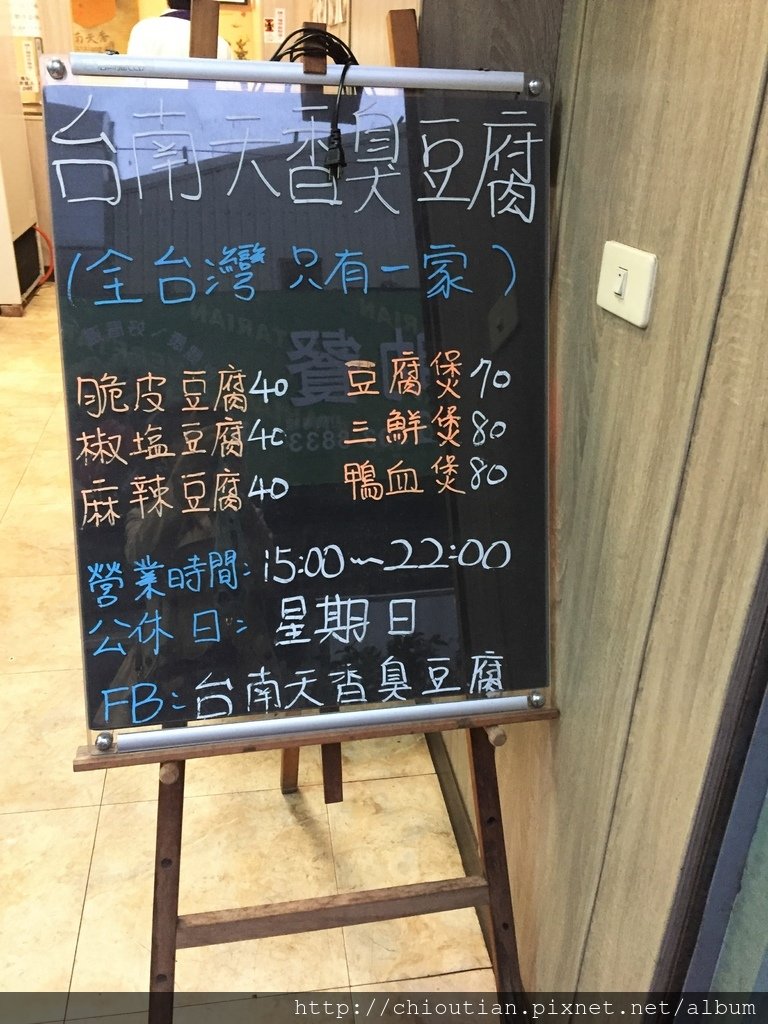 台南天香臭豆腐
(全台灣 只有一家)
脆皮豆腐40 豆腐煲70
椒塩豆腐40 三鮮煲80
麻辣豆腐40 鴨血煲80
營業時間:15:00~22:00
公休日: 星期日
FB:台南天香臭豆腐
http://chioutian.pixnet.net/album